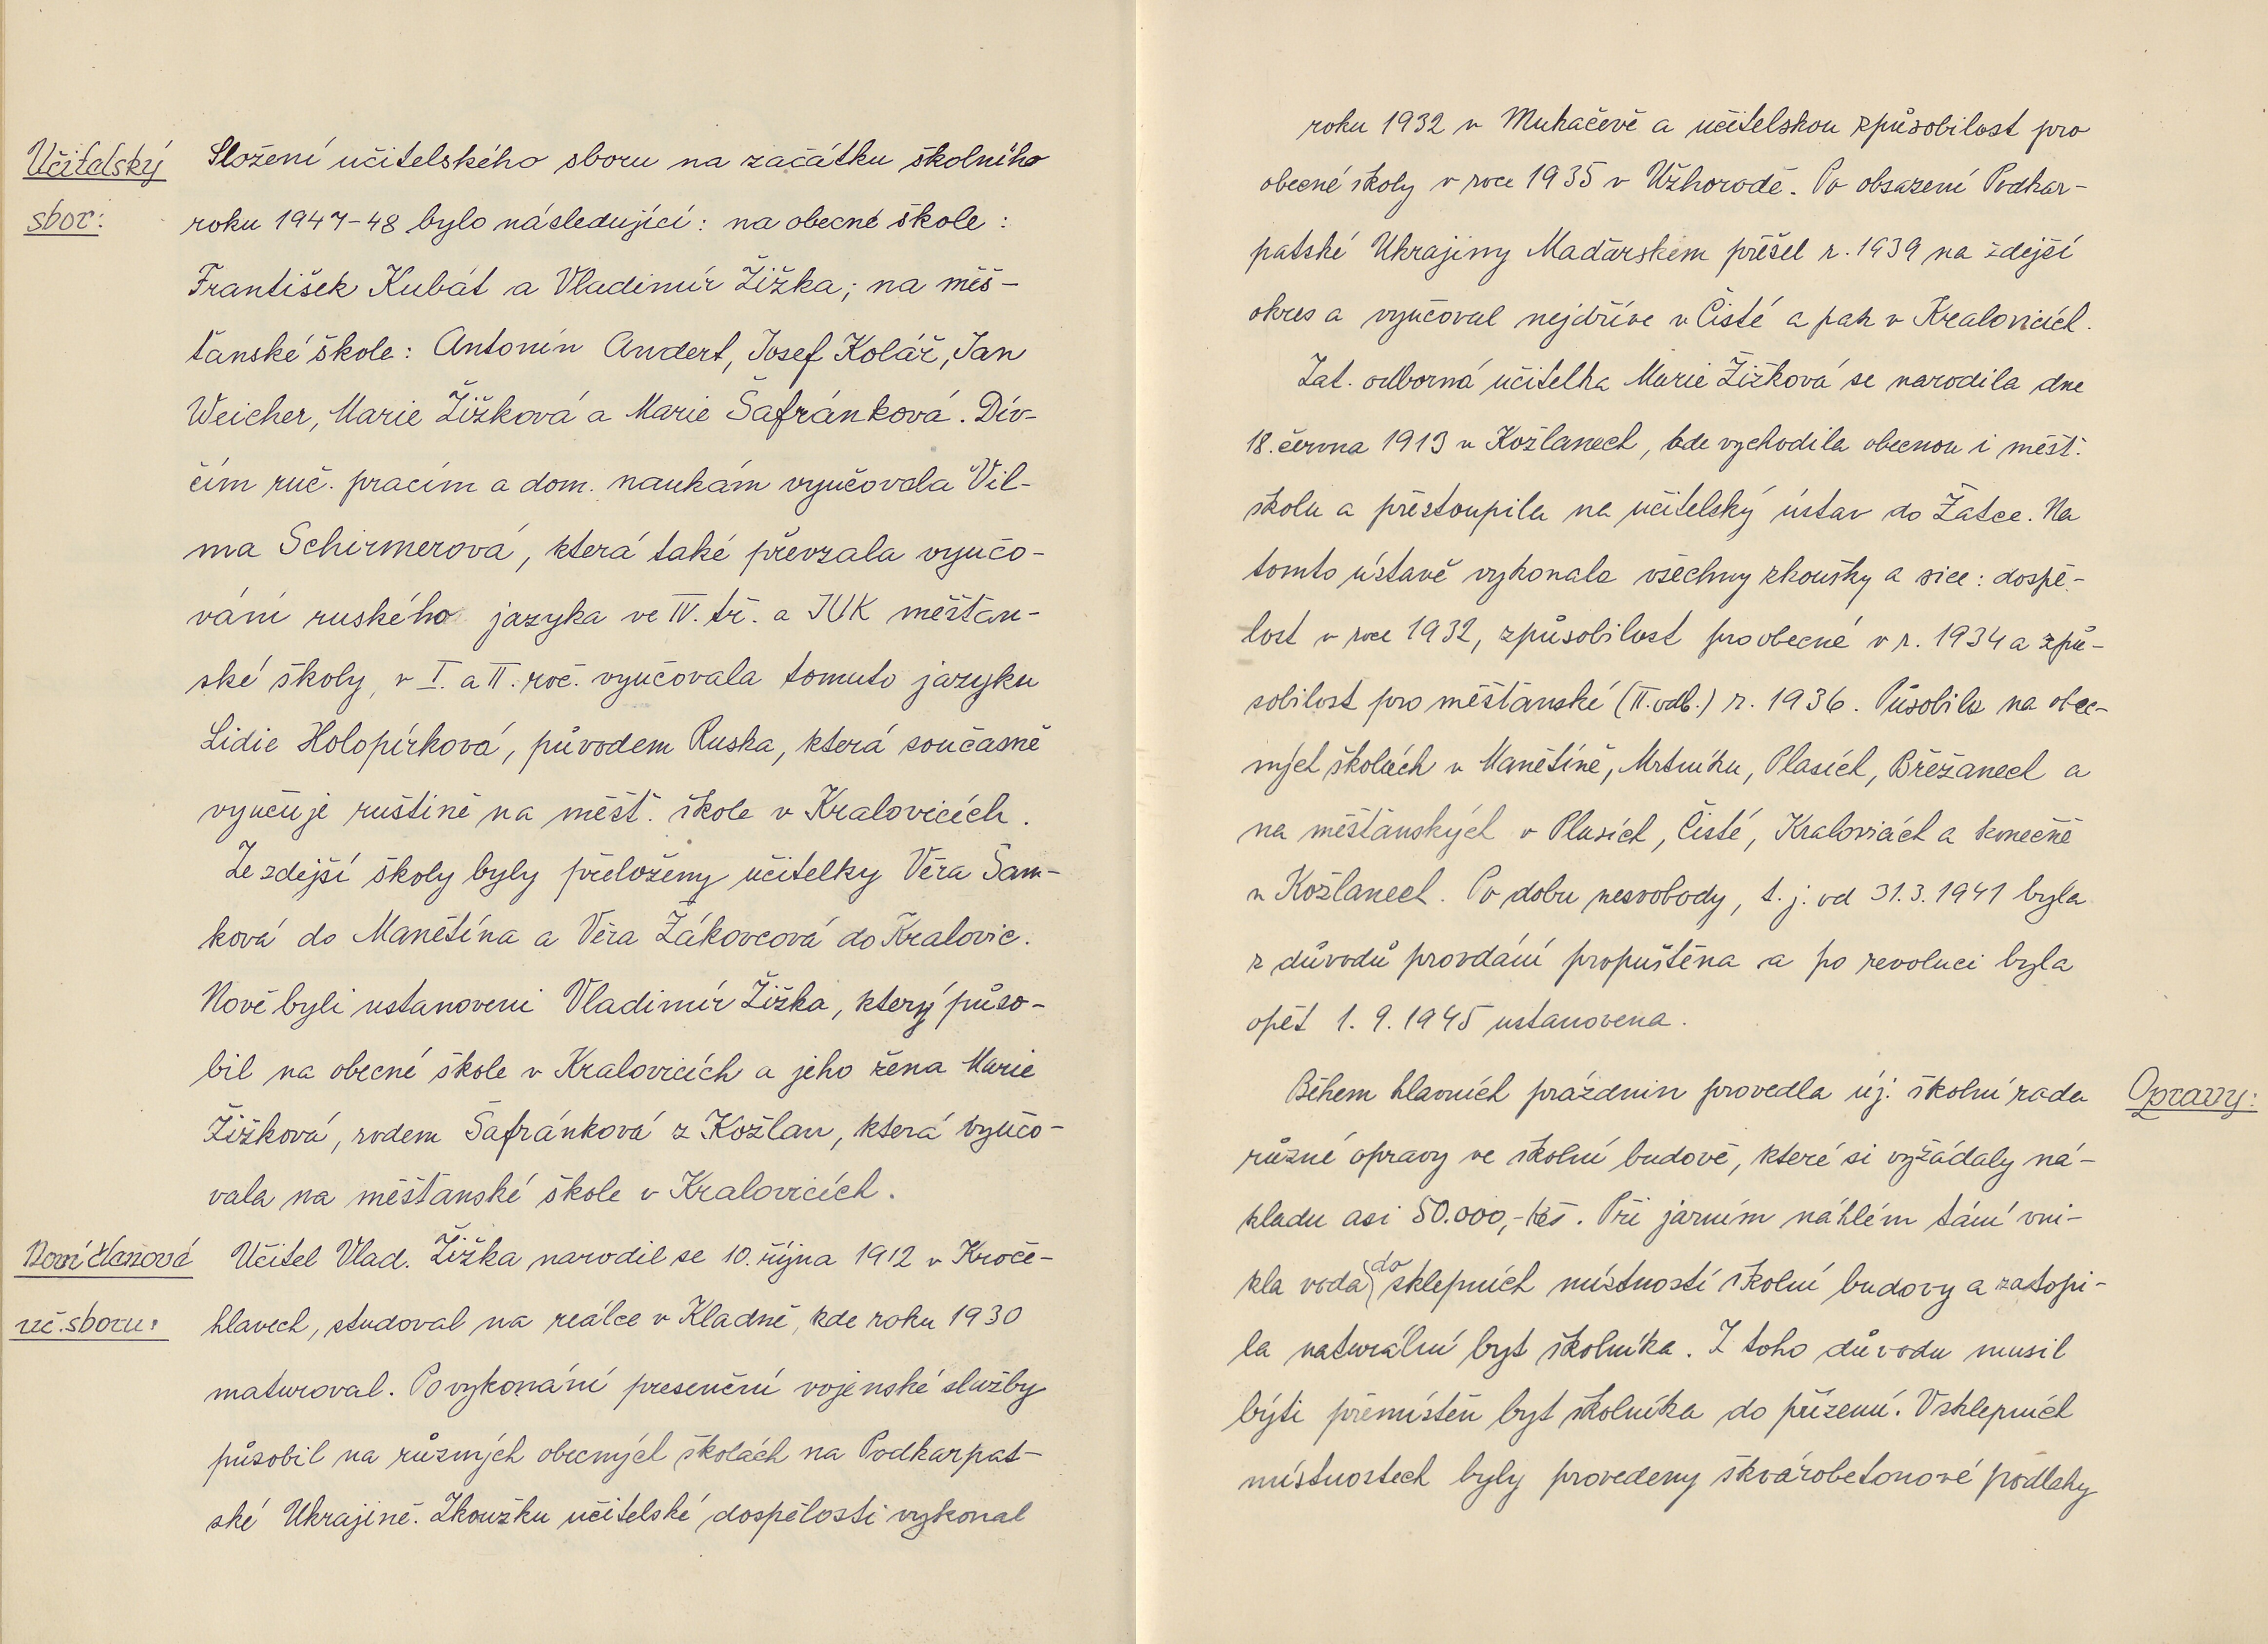 Učitelský
sbor:
Složení učitelského sboru na začátku školního
roku 1947-48 bylo následující: na obecné škole:
František Kubát a Vladimír Žižka; na měš-
ťanské škole: Antonín Andert, Josef Kolář, Jan
Weicher, Marie Žižková a Marie Šafránková. Dív-
čím ruč. pracím a dom. naukám vyučovala Vil-
ma Schirmerová, která také převzala vyučo-
vání ruského jazyka ve IV. tř. a JUK měšťan-
ské školy, v I. a II. roč. vyučovala tomuto jazyku
Lidie Holopírková, původem Ruska, která současně
vyučuje ruštině na měšť. škole v Kralovicích.
Ze zdejší školy byly přeloženy učitelky Věra Sam-
ková do Manětína a Věra Žákovcová do Kralovic.
Nově byli ustanoveni Vladimír Žižka, který půso-
bil na obecné škole v Kralovicích a jeho žena Marie
Žižková, rodem Šafránková z Kožlan, která vyučo-
vala na měšťanské škole v Kralovicích.
Noví členové
uč. sboru:
Učitel Vlad. Žižka narodil se 10. října 1912 v Kroče-
hlavech, studoval na reálce v Kladně, kde roku 1930
maturoval. Po vykonání presenční vojenské služby
působil na různých obecných školách na Podkarpat-
ské Ukrajině. Zkoušku učitelské dospělosti vykonal
roku 1932 v Mukačevě a učitelskou způsobilost pro
obecné školy v roce 1935 v Užhorodě. Po obsazení Podkar-
patské Ukrajiny Maďarskem přešel r. 1939 na zdejší
okres a vyučoval nejdříve v Čisté a pak v Kralovicích.
Zat. odborná učitelka Marie Žižková se narodila dne
18. června 1913 v Kožlanech, kde vychodila obecnou i měšť.
školu a přestoupila na učitelský ústav do Žatce. Na
tomto ústavě vykonala všechny zkoušky a sice: dospě-
lost v roce 1932, způsobilost pro obecné v r. 1934 a způ-
sobilost pro měšťanské (II. odb.) r. 1936. Působila na obec-
ných školách v Manětíně, Mrtníku, Plasích, Břežanech a
na měšťanských v Plasích, Čisté, Kralovicích a konečně
v Kožlanech. Po dobu nesvobody, t. j. od 31.3.1941 byla
z důvodů provdání propuštěna a po revoluci byla
opět 1. 9. 1945 ustanovena.
Během hlavních prázdnin provedla új. školní rada
Opravy:
různé opravy ve školní budově, které si vyžádaly ná-
kladu asi 50.000,- Kčs. Při jarním náhlém tání vni-
kla voda do sklepních místností školní budovy a zatopi-
la naturální byt školníka. Z toho důvodu musil
býti přemístěn byt školníka do přízemí. V sklepních
místnostech byly provedeny škvárobetonové podlahy